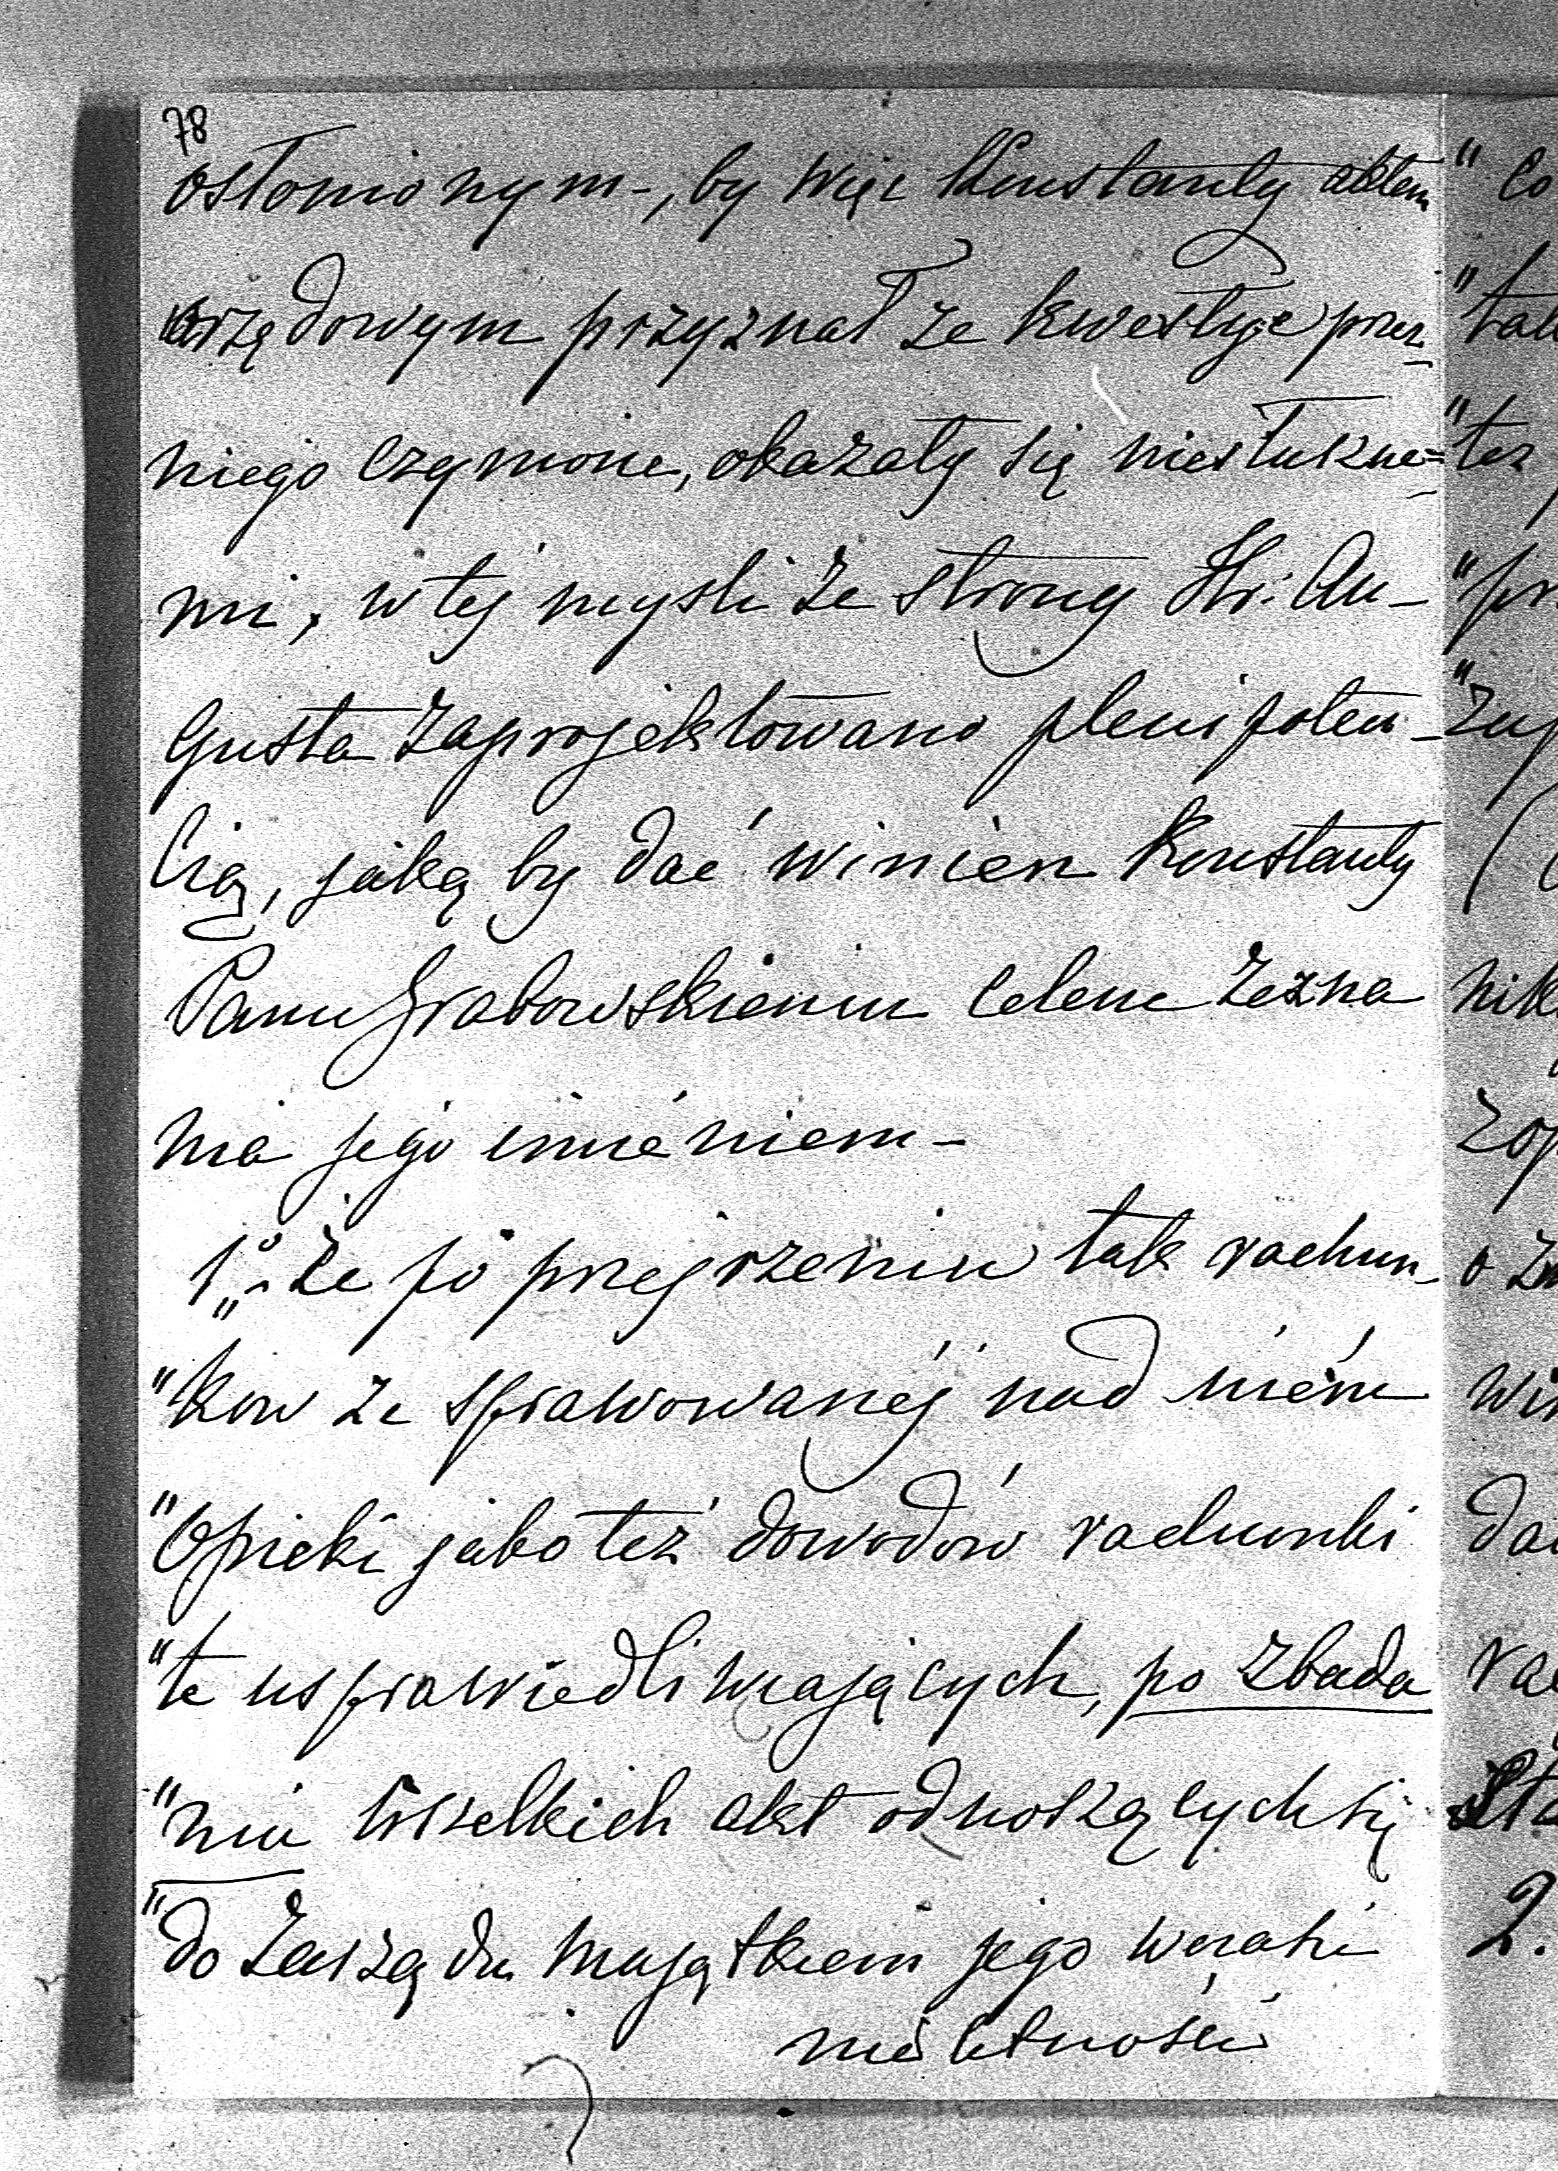 78
osłonionym-, by więc Konstanty aktem
urzędowym przyznał że kwestyje przez
niego czynione, okazały się niesłuszne=
mi, w tej myśli ze strony Hr: Au-
gusta zaprojektowano plenipoten-
cią, jaką by dać winien Konstanty
Panu Grabowskiemu celem zezna
nia jego imieniem-
1o Że po przejrzeniu tak rachun-
"kow ze sprawowanéj nad niém
"Opieki jako też dowodów rachunki
"te usprawiedliwiających, po zbada
"niu wszelkich akt odnoszących się
"do Zarządu majątkiem jego w czasie
nieletności